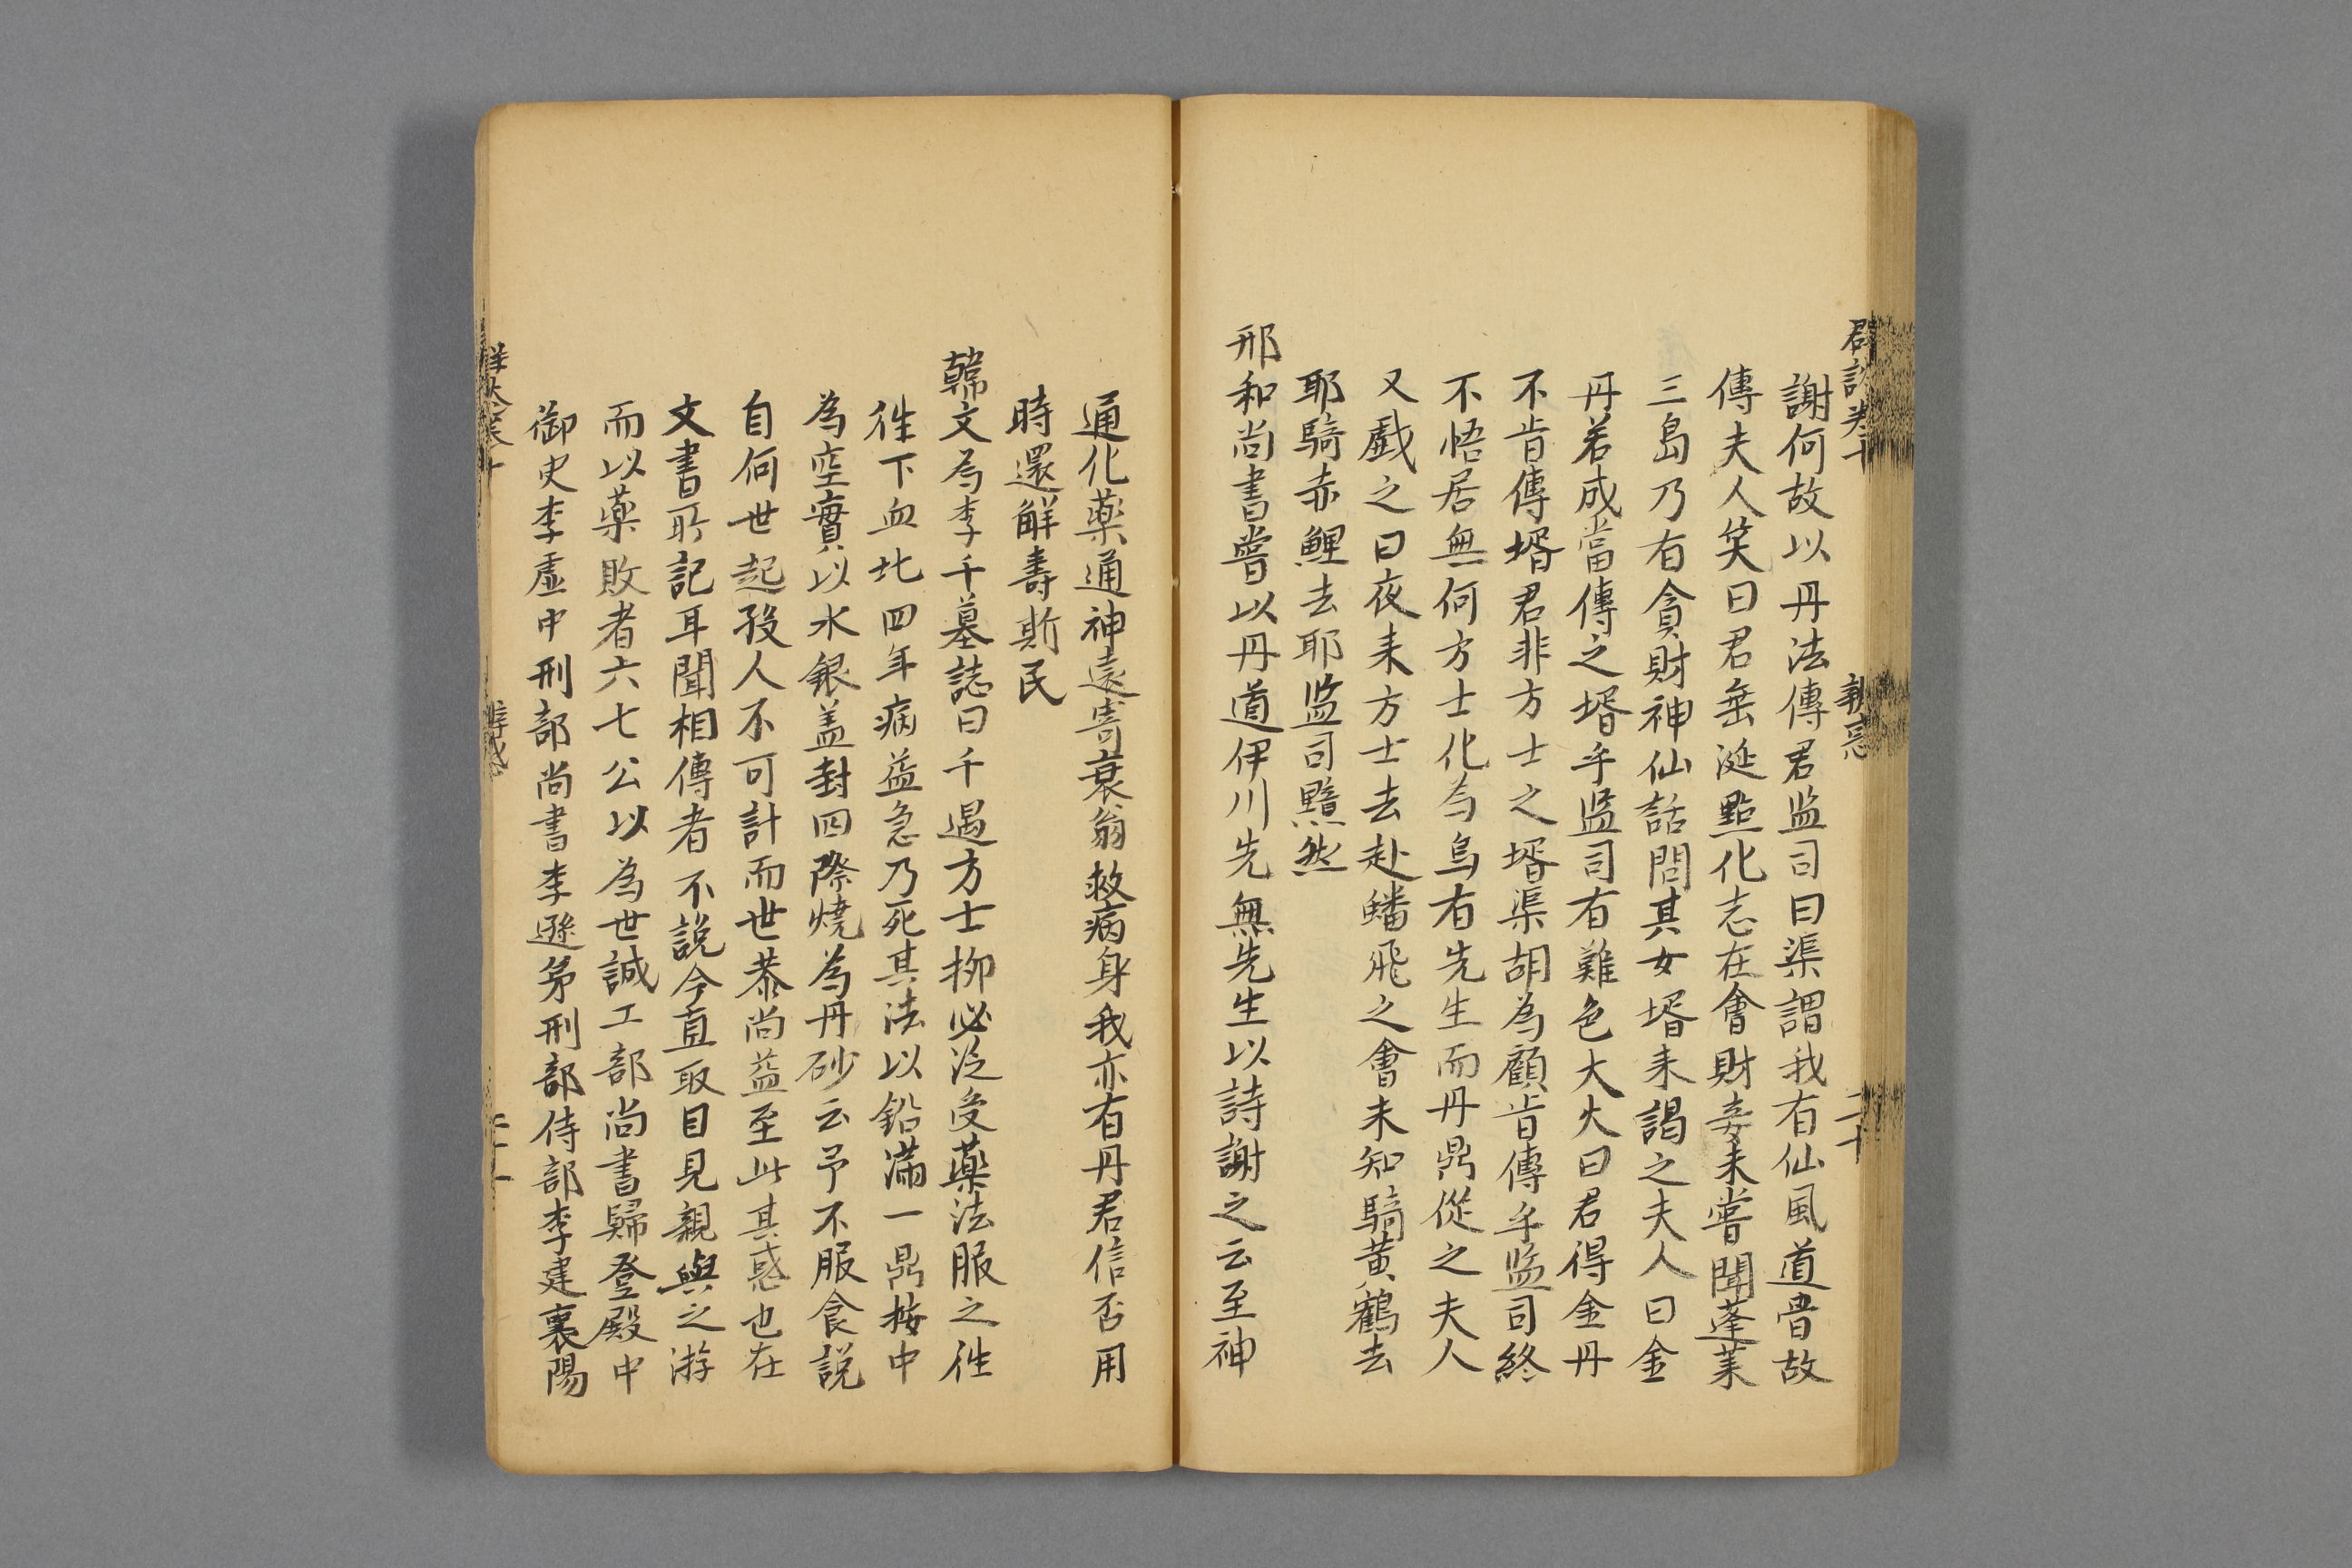 群談卷十 辨惑 二十
謝何故以丹法傳君监司曰渠謂我有仙風道骨故
傳夫人笑曰君垂涎點化志在會財妾未嘗聞蓬莱
三島乃有貪財神仙話問其女壻来謁之夫人曰金
丹若成當傳之壻乎监司有難色大久曰君得金丹
不肯傳壻君非方士之壻渠胡為顧肯傳乎监司終
不悟居無何方士化為烏有先生而丹鼎從之夫人
又戯之曰夜来方士去赴蟠飛之會未知騎黄鶴去
耶騎赤鯉去耶监司黯然
邢和尚書嘗以丹道伊川先無先生以詩謝之云至神
通化藥通神遠寄衰翁救病身我亦有丹君信否用
時還觧壽斯民
韓文為李千墓誌曰千遇方士柳必泛受藥法服之徃
徃下血比四年病益急乃死其法以鉛滿一鼎按中
為空實以水銀盖封四際燒為丹砂云予不服食説
自何世起殺人不可計而世恭尚益至此其惑也在
文書所記耳聞相傳者不説今直取目見親與之游
而以藥敗者六七公以為世誠工部尚書歸登殿中
御史李虛中刑部尚書李遜弟刑部侍部李建襄陽